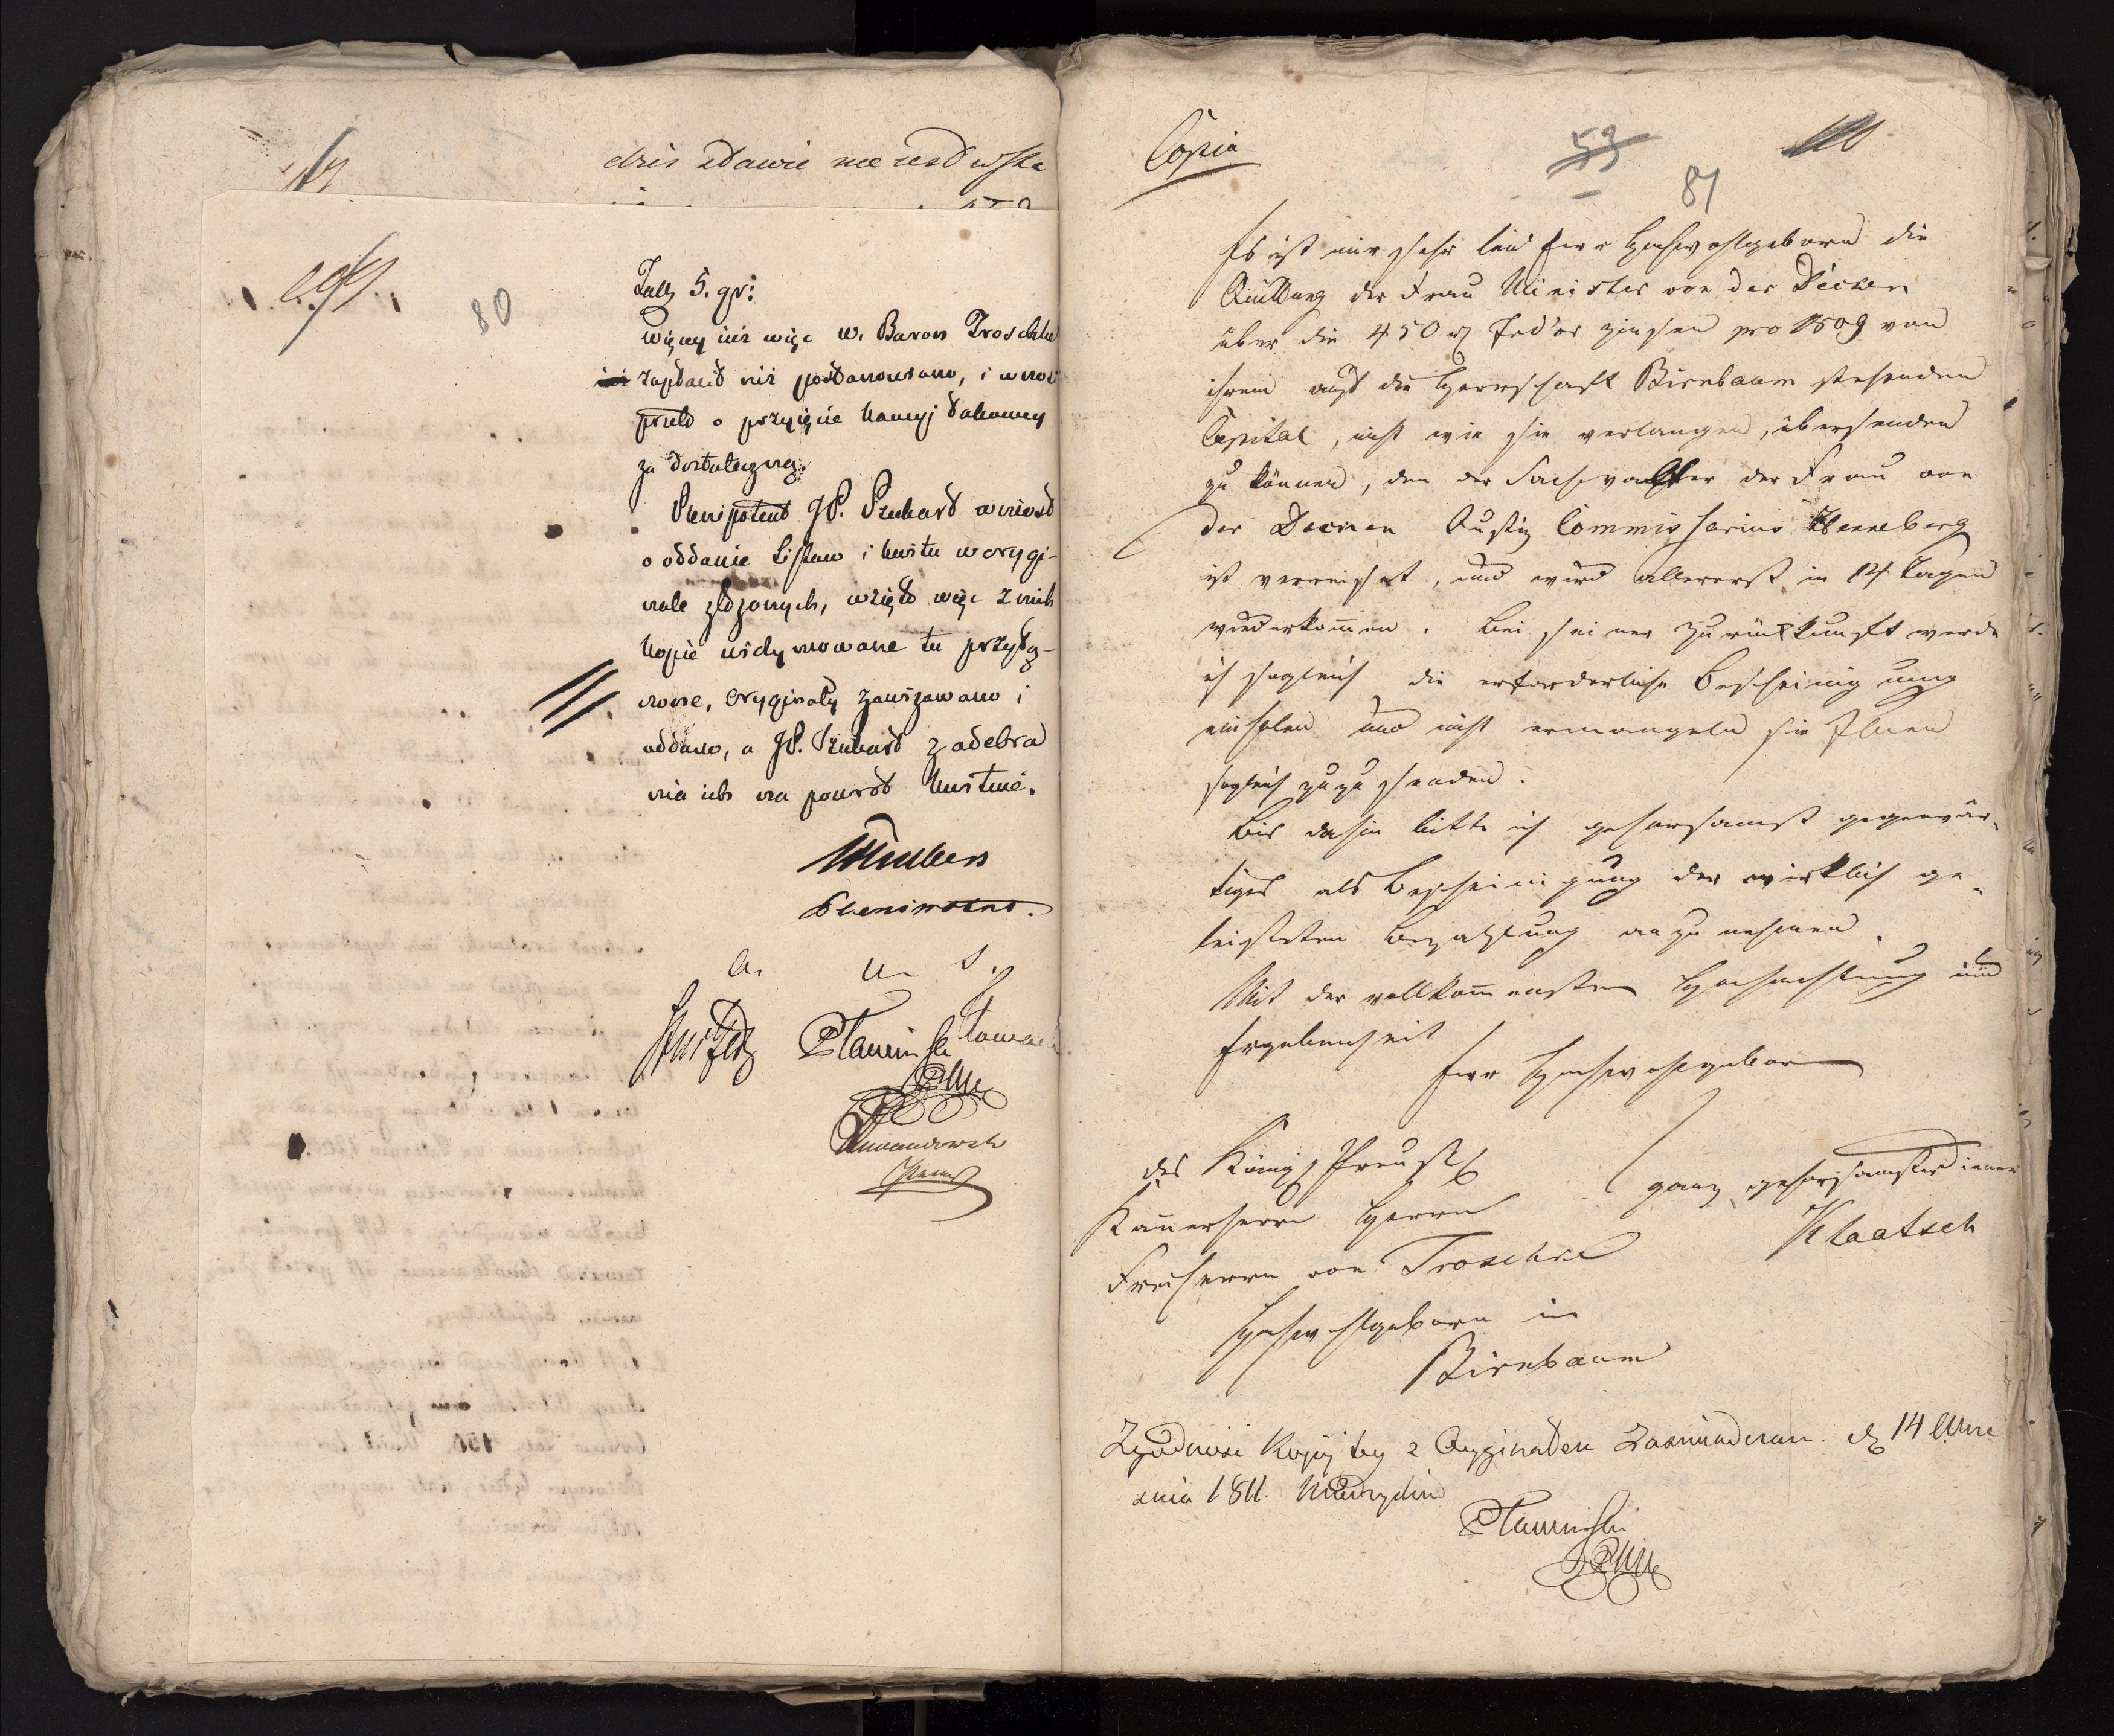 dziś
80
Tall 5. gr:
więcej niż więc W. Baron Troschke
zapłacił niż postanowiono, i wnosi
przeto o przyjęcie kaucyi takowey
za dostateczną.
Plenipotent JP. Szubert wniósł
o oddanie Listów i kwitu w orygi-
nale złożonych, wzięto więc z nich
kopie widymowane tu przyłą-
czone, oryginały zawizowano i
oddano, a JP. Szubert z odebra
nia ich na powrót kwituie.
Plenipotent.
a. u. s.
Copia
53
81
Es ist mir sehr leid Ewr Hochwohlgeborn die
Quittung der Frau Minister von der Decken
über die 450 rh Frd'or Zinsen pro 1809 von
ihrem auf die Herrschaft Birnbaum stehenden
Capital, nicht wie Sie verlangen, übersenden
zu können, den der Sachwalter der Frau von
der Decken Justiz Commissarius Henneberg
ist verreiset, und wird allererst in 14 Tagen
wiederkom̄en. Bei seiner Zurückkunft werde
ich sogleich die erforderliche Bescheinigung
einholen und nicht ermangeln sie Ihnen
sogleich zuzusenden.
Bis dahin bitte ich gehorsamst gegenwär-
tiges als Bescheinigung der wirklich ge-
leisteten Bezahlung anzunehmen.
Mit der vollkom̄ensten Hochachtung und
Ergebenheit
Ewr Hochwohlgeborn
des Königl Preuß
Kam̄erherrn Herrn
ganz gehorsamster diener
Klaatsch
Freiherrn von Troschke
Hochwohlgeborn in
Birnbaum
Zgodność Kopij tey z Oryginałem Zaświadczam. d 14 Wrze
śnia 1811. Międzychód